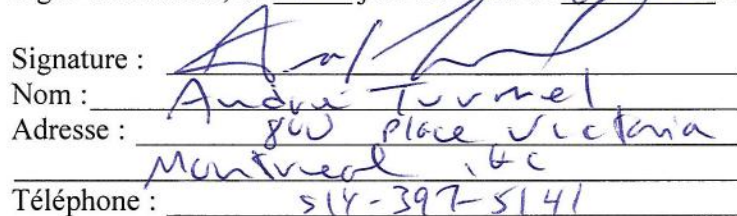 Signature :
Nom : André Turmel
Adresse : 800 Place Victoria
Montreal
Téléphone : 514-397-5141